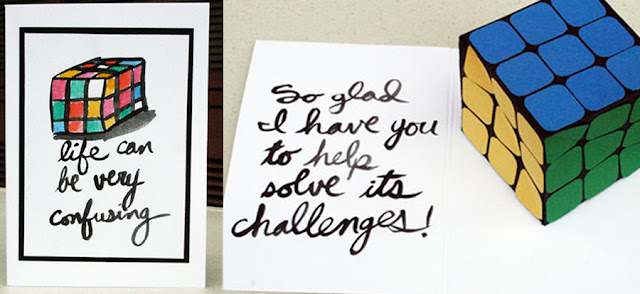 life can
be very
confusing
So glad
I have you
to help
solve its
challenges!